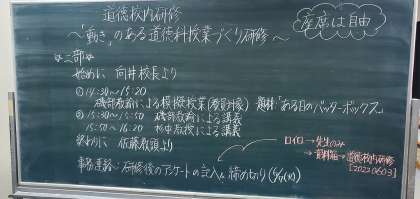 道徳校内研修
座席は自由
〜「動き」のある道徳科授業づくり研修〜
☆二部☆
始めに 向井校長より
①14:30〜15:20
磯部教諭による模擬授業(教員対象) 題材「ある日のバッターボックス」
②15:30〜15:50 磯部教諭による講義
15:50〜16:20 杉中教授による講義
終わりに 佐藤教頭より
事務連絡:研修後のアンケートの記入〆締め切り(6/6(月))
ロイロ→先生のみ
→資料箱→道徳校内研修
[20220603]